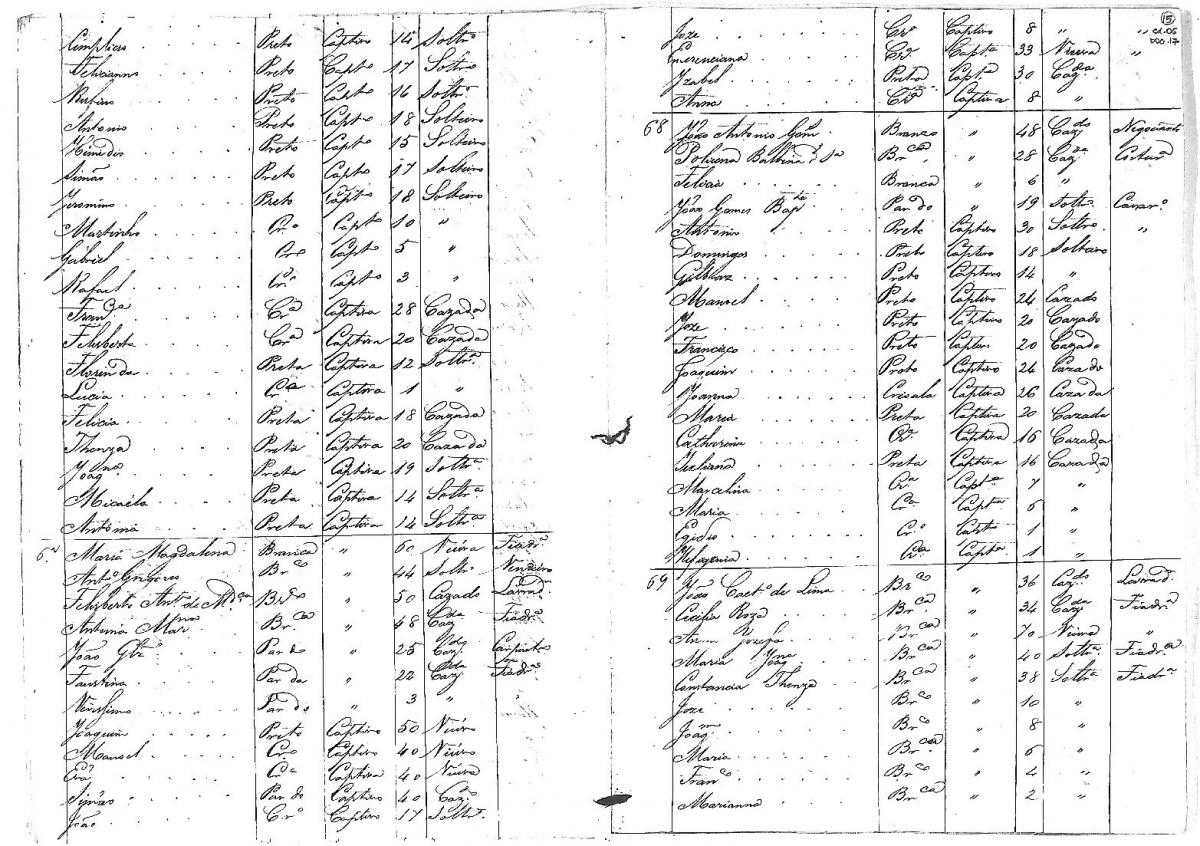 Preto Captivo 14 Soltrº
Felicianno Preto Captº 17 Soltrº
Rufino Preto Captº 16 Soltrº
Antonio Preto Captº 18 Solteiro
Preto Captº 15 Solteiro
Simão Preto Captº 17 Solteiro
Jeronimo Preto Captº 18 Solteiro
Martinho Crº Captº 10 "
Gabriel Crº Captº 5 "
Rafael Crº Captº 3 "
Franca Crª Captiva 28 Cazada
Felisberta Crª Captiva 20 Cazada
Florinda Preta Captiva 12 Soltrª
Lucia Crª Captiva 1 "
Felicia Preta Captiva 18 Cazada
Thereza Preta Captiva 20 Cazada
Joaqna Preta Captiva 19 Soltrª
Micaela Preta Captiva 14 Soltrª
Antonia Preta Captiva 14 Soltrª
Maria Magdalena Branca " 60 Viúva Fiadrª
Antº Brco " 44 Soltrº
Felisberto Antº de Brco " 50 Cazado Lavrad
Antonia Brca " 48 Cazda Fiadrª
João Pardo " 25 Cazdo Carpintrº
Faustina Parda " 22 Cazda Fiadrª
Verissimo Pardo " 3 "
Joaquim Preto Captivo 50 Viúvo
Manoel Crº Captivo 40 Viúvo
Crª Captiva 40 Viúva
Simão Pardo Captivo 40 Cazdo
João Crº Captivo 17 Soltrº
15
Joze Crº Captivo 8 " "
Emerenciana Crª Captª 33 Viuva "
Izabel Preta Captª 30 Cazda
Anna Crª Captiva 8 "
68 João Antonio Branco " 48 Cazdo Negociante
Brca " 28 Cazda
Branca " 6 "
João Gomes Baptta Pardo " 19 Soltrº
Antonio Preto Captivo 30 Soltrº "
Domingos Preto Captivo 18 Solteiro
Preto Captivo 14 "
Manoel Preto Captivo 24 Cazado
Joze Preto Captivo 20 Cazado
Francisco Preto Captivo 20 Cazado
Joaquim Preto Captivo 24 Cazado
Joanna Crioula Captiva 26 Cazada
Maria Preta Captiva 20 Cazada
Catharina Crª Captiva 16 Cazada
Juliana Preta Captiva 16 Cazada
Marcelina Crª Captª 7 "
Maria Crª Captª 6 "
Egidio Crº Captº 1 "
Crª Captª 1 "
69 João Caetº de Lima Brco " 36 Cazdo Lavrad
Cecilia Roza Brca " 34 Cazda Fiadrª
Josefa Brca " 70 Viuva "
Maria Joaqna Brca " 40 Soltrª Fiadrª
Constancia Thereza Brca " 38 Soltrª Fiadrª
Joze Brco " 10 "
Joaqm Brco " 8 "
Maria Brca " 6 "
Franco Brco " 4 "
Marianna Brca " 2 "